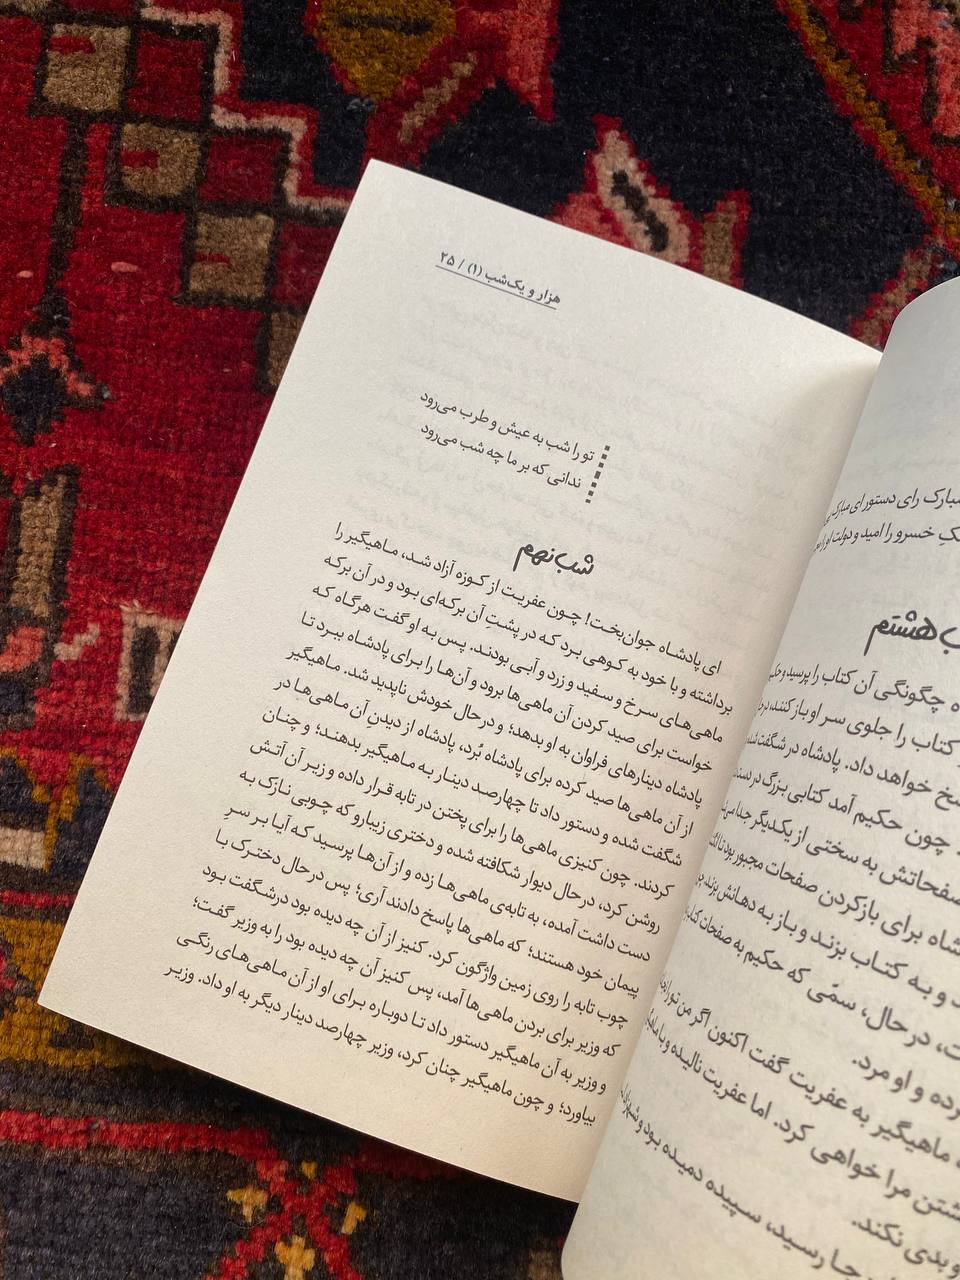 مبارک رای دستور ای مبارک پی
خسرو را امید و دولت او را
هشتم
چگونگی آن کتاب را پرسید و حکیم
کتاب را جلوی سر او باز کنند، در
خواهد داد. پادشاه در شگفت شد
چون حکیم آمد کتابی بزرگ در دست
صفحاتش به سختی از یکدیگر جدا می
برای باز کردن صفحات مجبور بود تا
و به کتاب بزند و باز به دهانش بزند
در حال، سمّی که حکیم به صفحات کتاب
و او مرد.
ماهیگیر به عفریت گفت اکنون اگر من تو را
مرا خواهی کرد. اما عفریت نالیده و با
و بدی نکند.
رسید، سپیده دمیده بود و شهرزاد
هزار و یک‌شب (۱) / ۲۵
تو را شب به عیش و طرب می‌رود
ندانی که بر ما چه شب می‌رود
شب نهم
ای پادشاه جوان‌بخت! چون عفریت از کوزه آزاد شد، ماهیگیر را
برداشته و با خود به کوهی برد که در پشتِ آن برکه‌ای بود و در آن برکه
ماهی‌های سرخ و سفید و زرد و آبی بودند. پس به او گفت هرگاه که
خواست برای صید کردن آن ماهی‌ها برود و آن‌ها را برای پادشاه ببرد تا
پادشاه دینارهای فراوان به او بدهد؛ و درحال خودش ناپدید شد. ماهیگیر
از آن ماهی‌ها صید کرده برای پادشاه بُرد، پادشاه از دیدنِ آن ماهی‌ها در
شگفت شده و دستور داد تا چهارصد دینار به ماهیگیر بدهند؛ و چنان
کردند. چون کنیزی ماهی‌ها را برای پختن در تابه قرار داده و زیر آن آتش
روشن کرد، درحال دیوار شکافته شده و دختری زیبارو که چوبی نازک به
دست داشت آمده، به تابه‌ی ماهی‌ها زده و از آن‌ها پرسید که آیا بر سرِ
پیمان خود هستند؛ که ماهی‌ها پاسخ دادند آری؛ پس درحال دخترک با
چوب تابه را روی زمین واژگون کرد. کنیز از آن چه دیده بود درشگفت بود
که وزیر برای بردن ماهی‌ها آمد، پس کنیز آن چه دیده بود را به وزیر گفت؛
و وزیر به آن ماهیگیر دستور داد تا دوباره برای او از آن ماهی‌های رنگی
بیاورد؛ و چون ماهیگیر چنان کرد، وزیر چهارصد دینار دیگر به او داد. وزیر